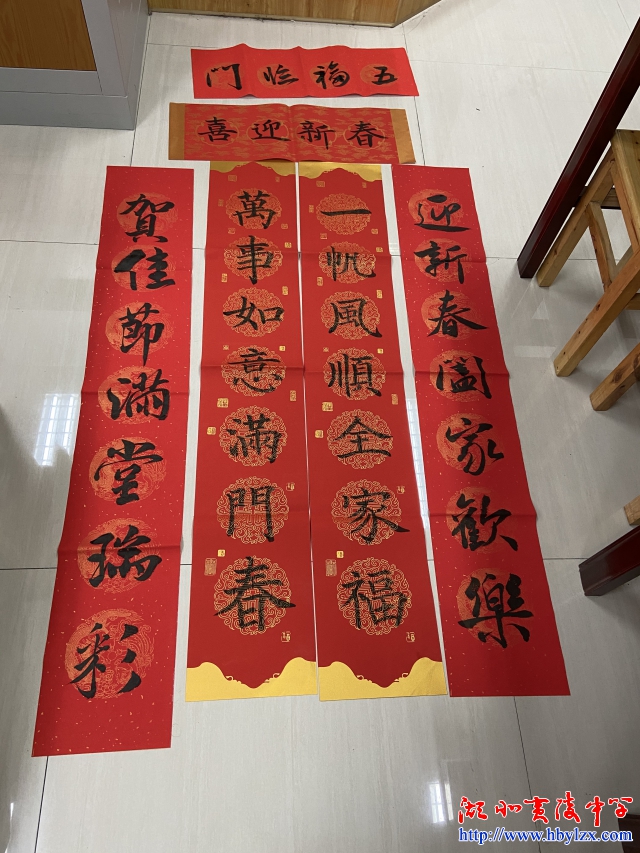 五福临門
春新迎喜
迎新春阖家歡樂
一帆風順全家福
萬事如意滿門春
賀佳節满堂瑞彩
湖北夷陵中学
http://www.hbylzx.com